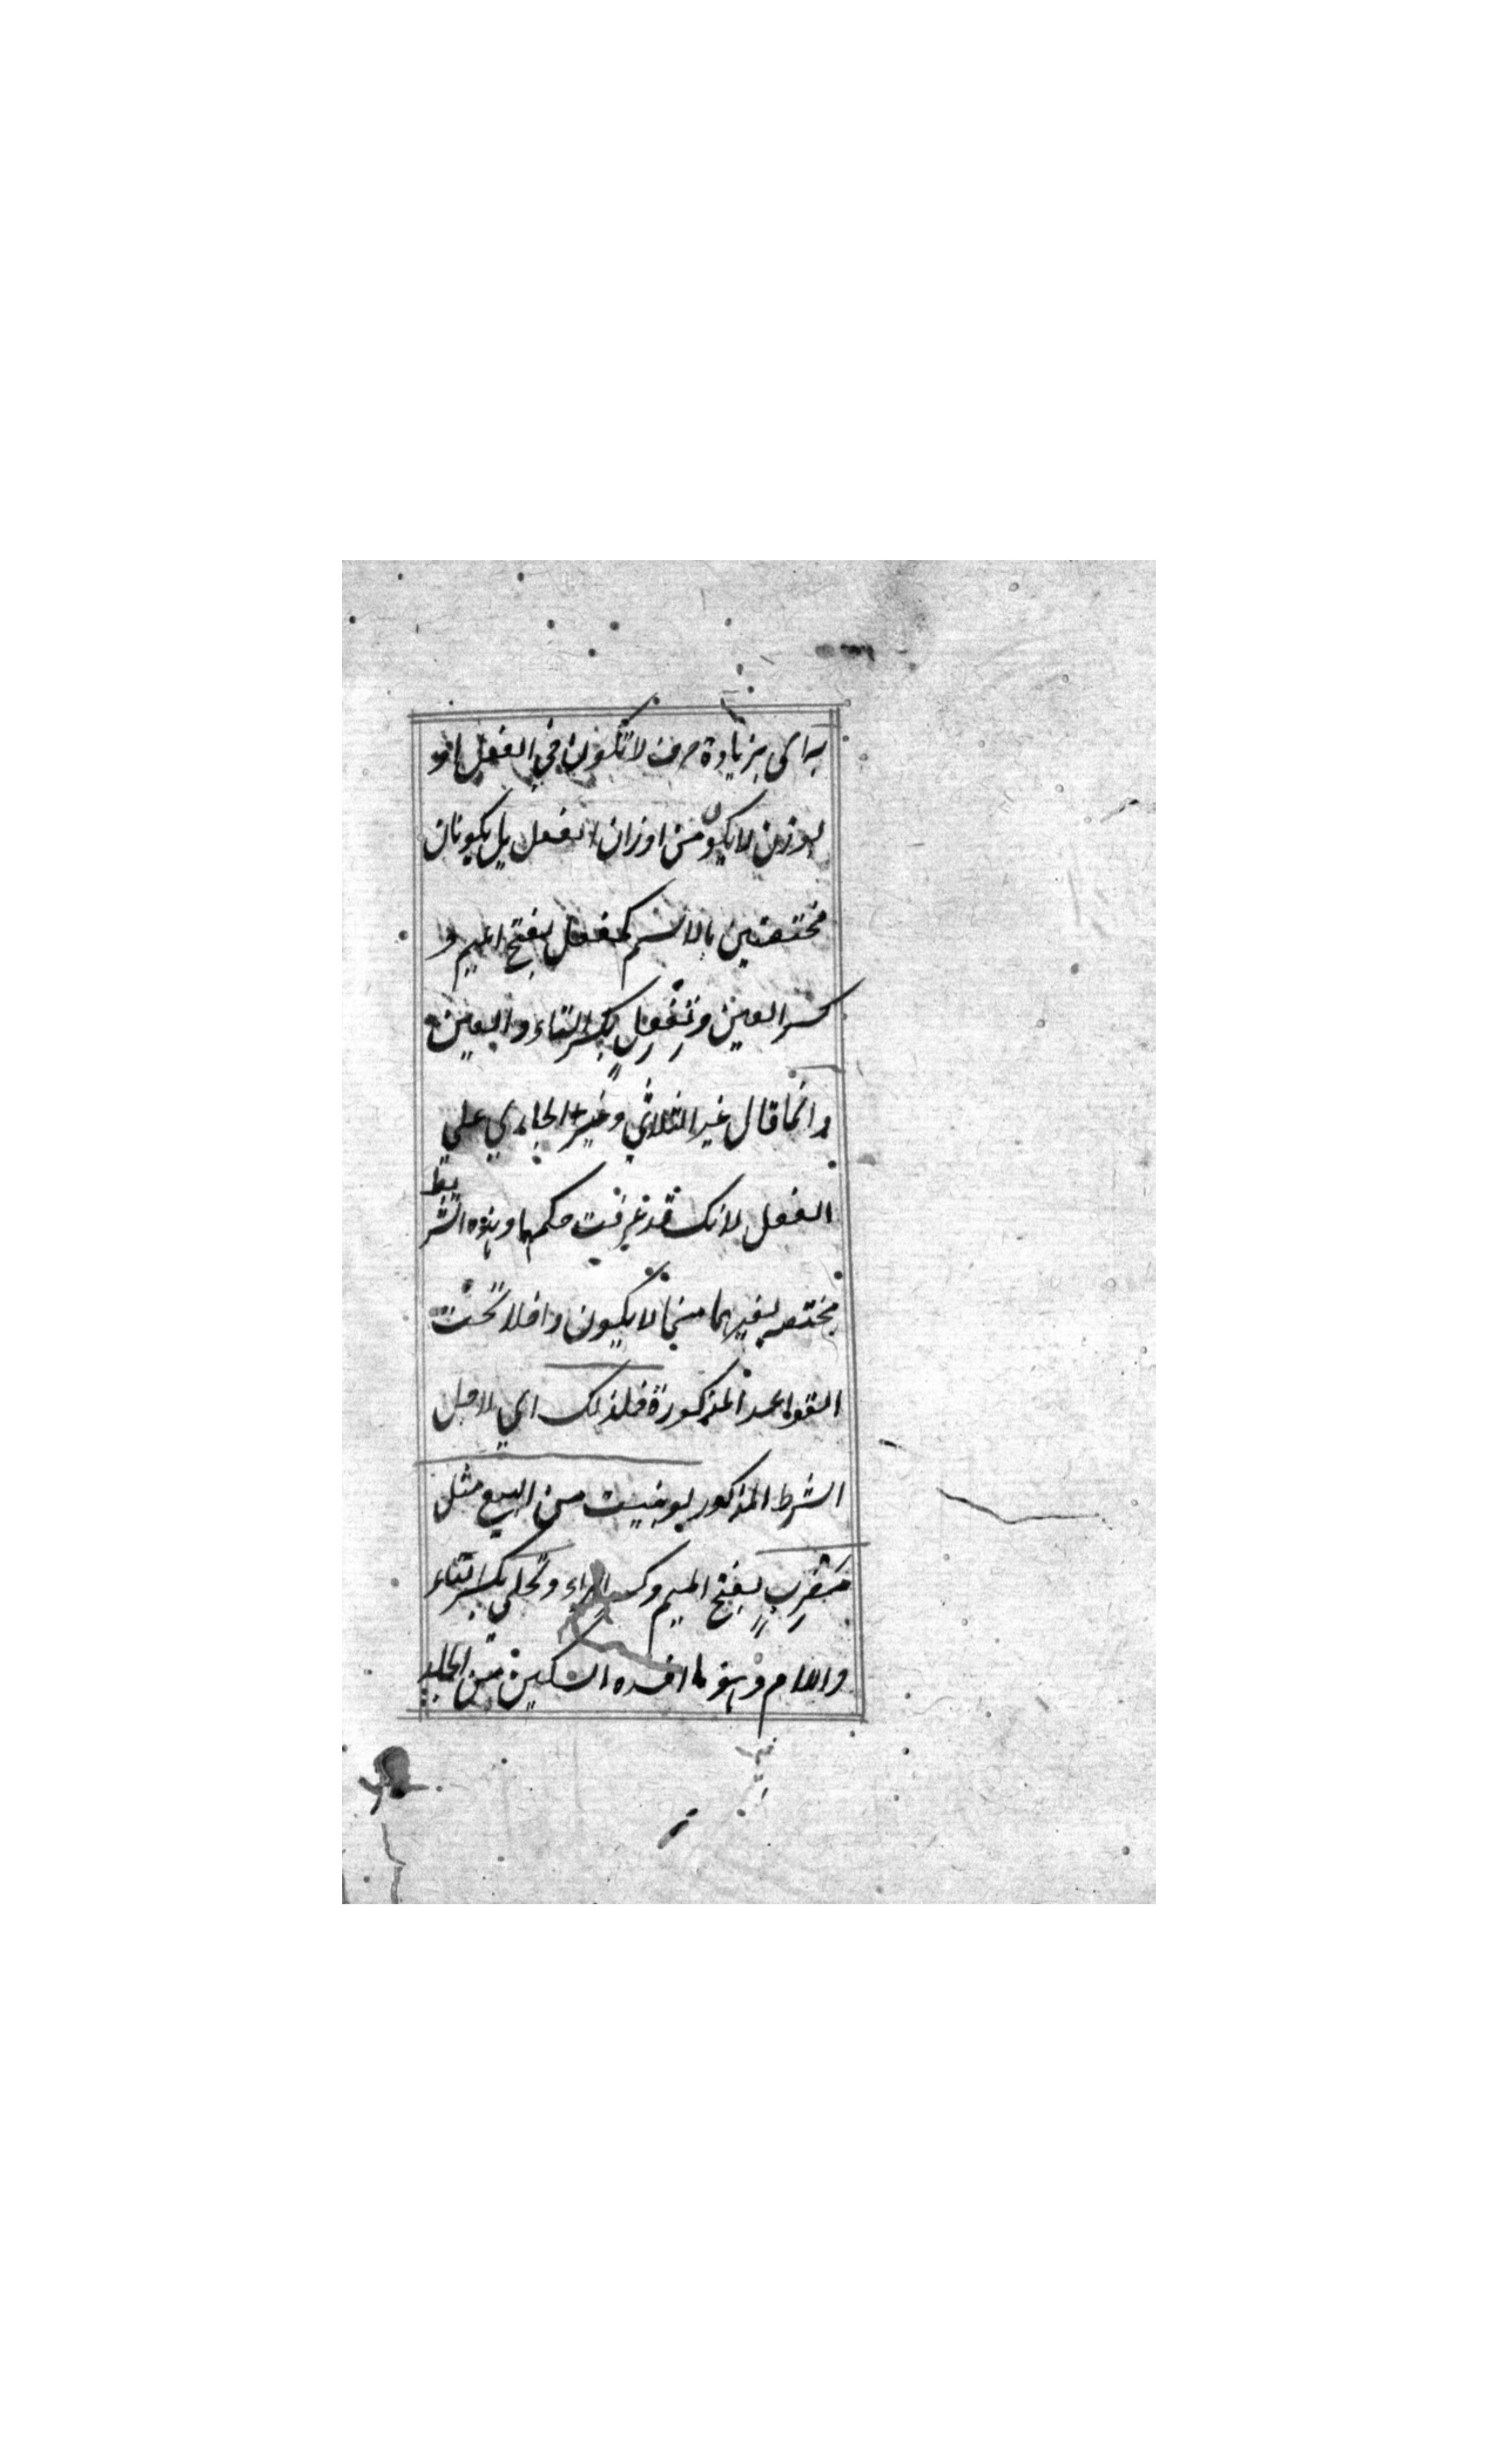 به اى بزيادة حرف لا تكون في الفعل او
بوزن لا يكون من اوزان الفعل بل يكونان
مختصتين بالاسم كمفعل بفتح الميم و
كسر العين وتِفْعِل بكسر التاء والعين
وانما قال غير الثلاثي وغير الجاري علي
الفعل لانك قد عرفت حكمهما وهذه الشرايط
مختصه بغيرهما مما لا يكون داخلا تحت
القواعد المذكورة فلذلك اي لاجل
الشرط المذكور لو بنيت من البيع مثل
مَضْرِب بفتح الميم وكسر الراء وتحلي بكسر التاء
واللام وهو ما افسده السكين من الجلد